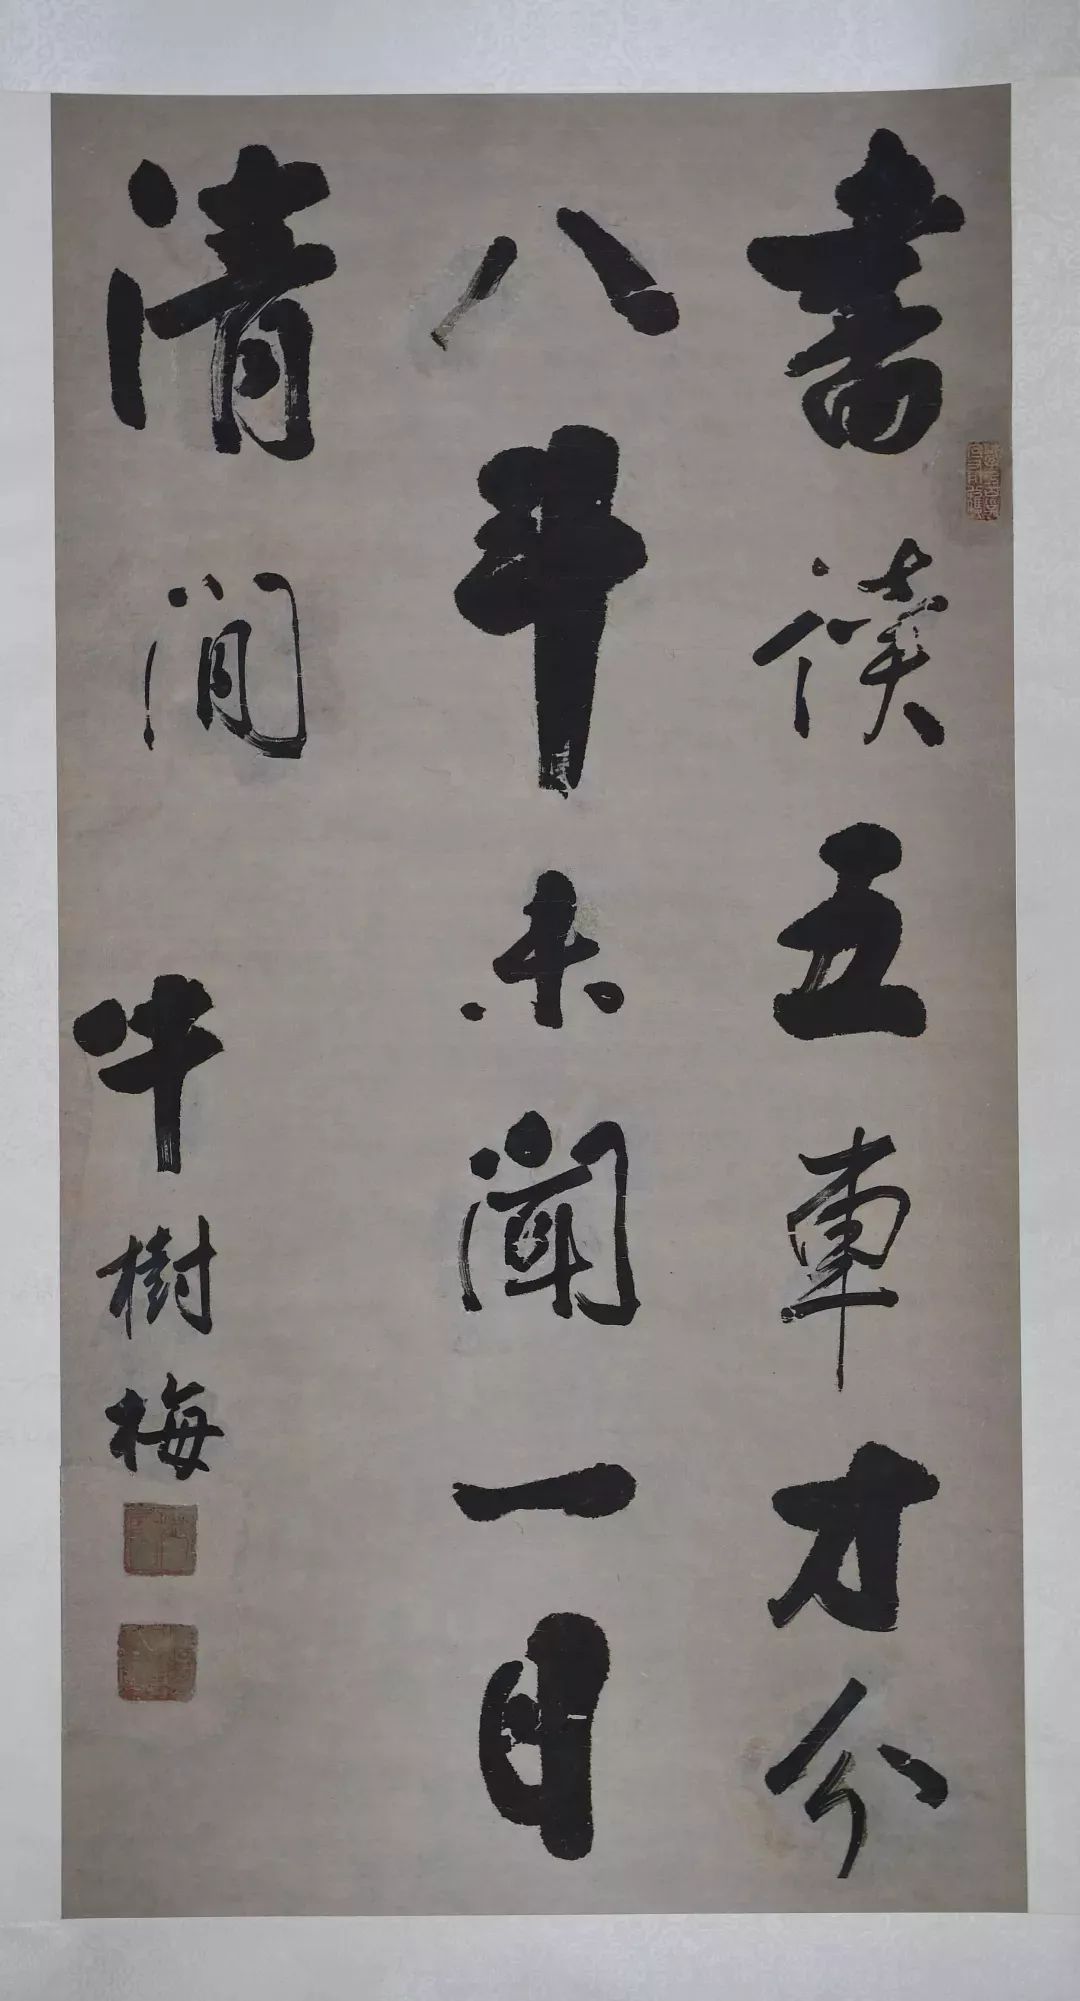 書讀五車才分
八斗未聞一日
清閒
牛樹梅